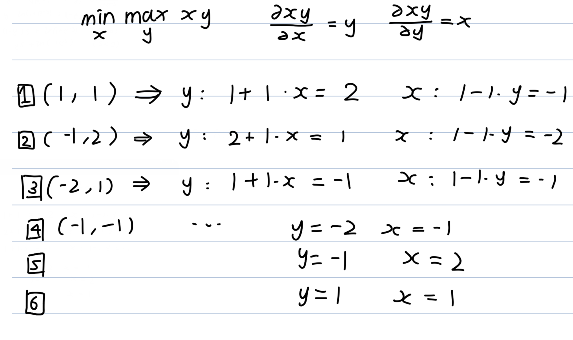 min max xy ∂xy/∂x = y ∂xy/∂y = x
x y
1 (1, 1) ⇒ y: 1+1·x = 2 x: 1-1·y = -1
2 (-1,2) ⇒ y: 2+1·x = 1 x: 1-1·y = -2
3 (-2,1) ⇒ y: 1+1·x = -1 x: 1-1·y = -1
4 (-1,-1) ... y = -2 x = -1
5 y = -1 x = 2
6 y = 1 x = 1